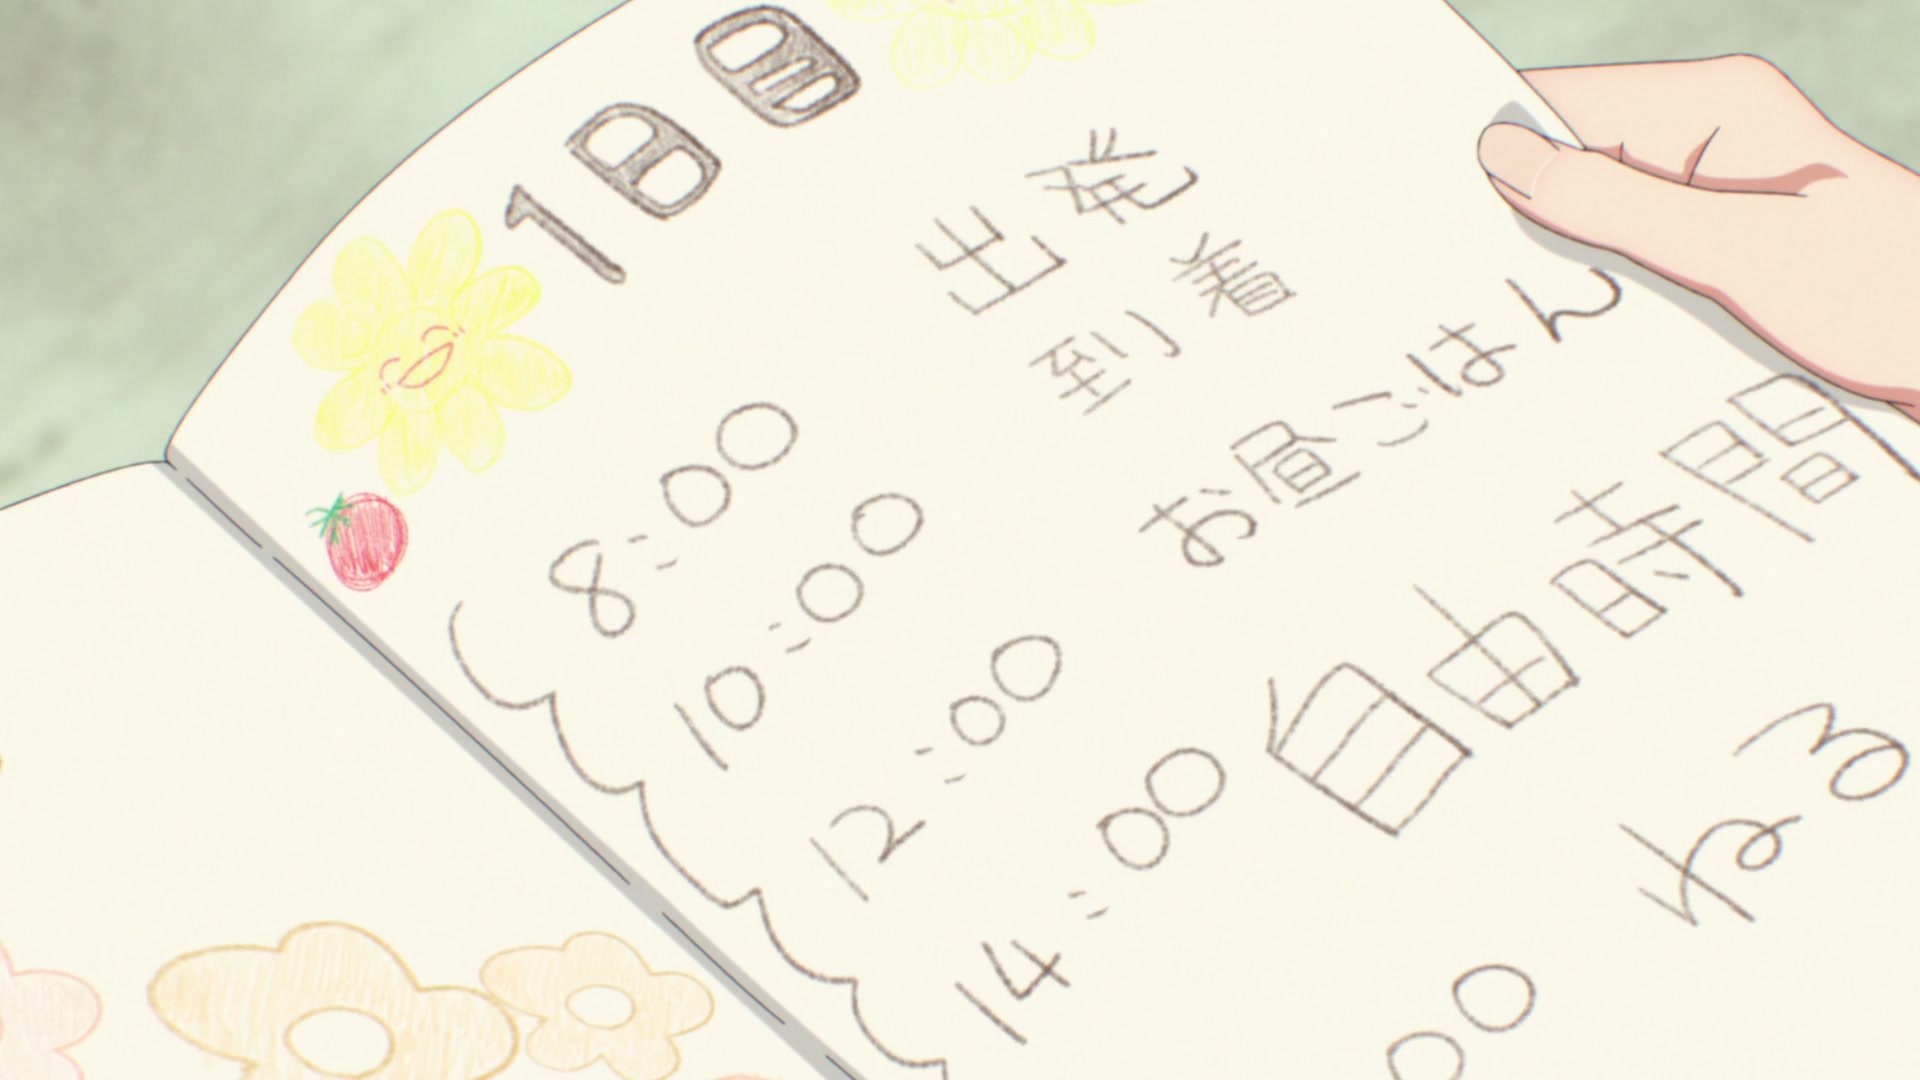 1日目
8:00 出発
10:00 到着
12:00 お昼ごはん
14:00 自由時間
00 ねる